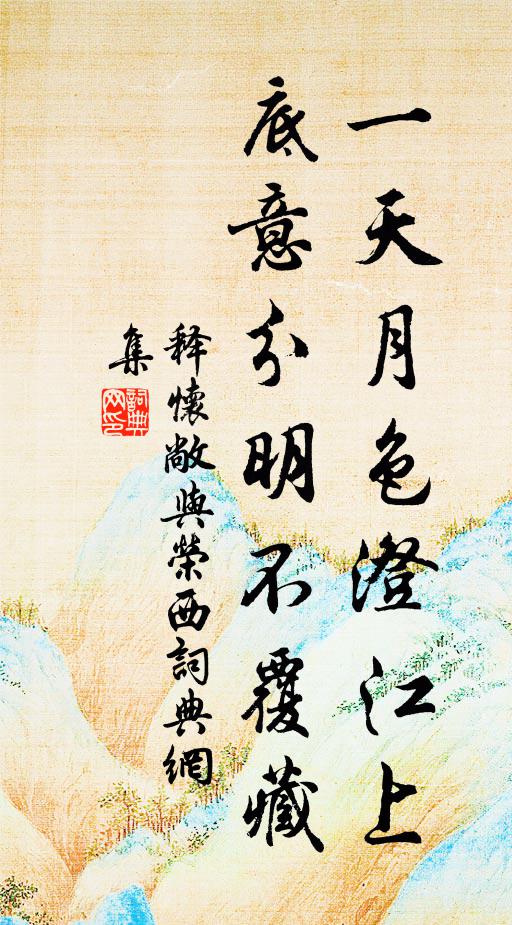 一天月色澄江上
底意分明不覆藏
释懷敞與榮西詞典網
集
詞典
网印